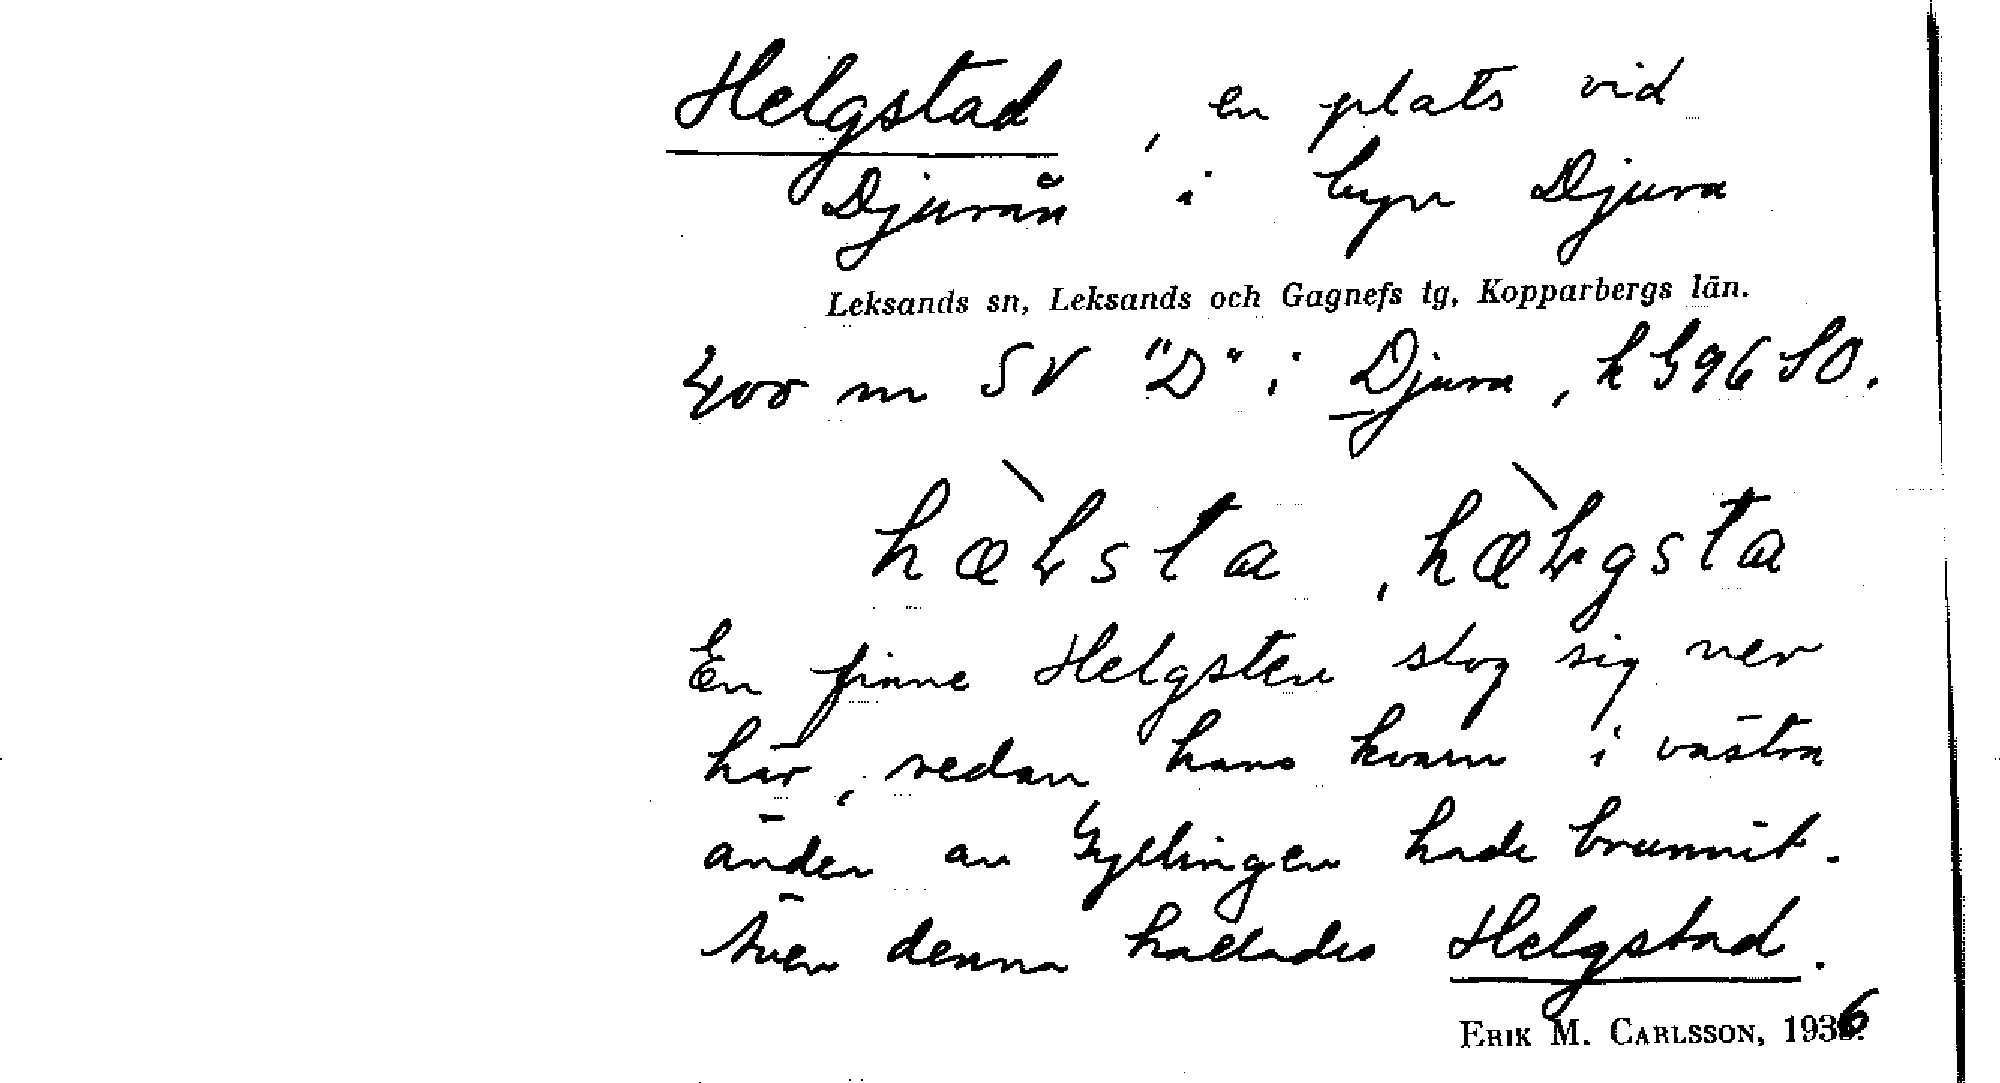 Helgstad, en plats vid
Djurån i byn Djura
Leksands sn, Leksands och Gagnefs tg, Kopparbergs län.
400 m SV "D" i Djura, k G96 SO.
hæ̀Lsta, hæ̀Lgsta
En finne Helgsten slog sig ner
här, sedan hans kvarn i västra
änden av Gyllingen hade brunnit.
Även denna kallades Helgstad.
ERIK M. CARLSSON, 1936.